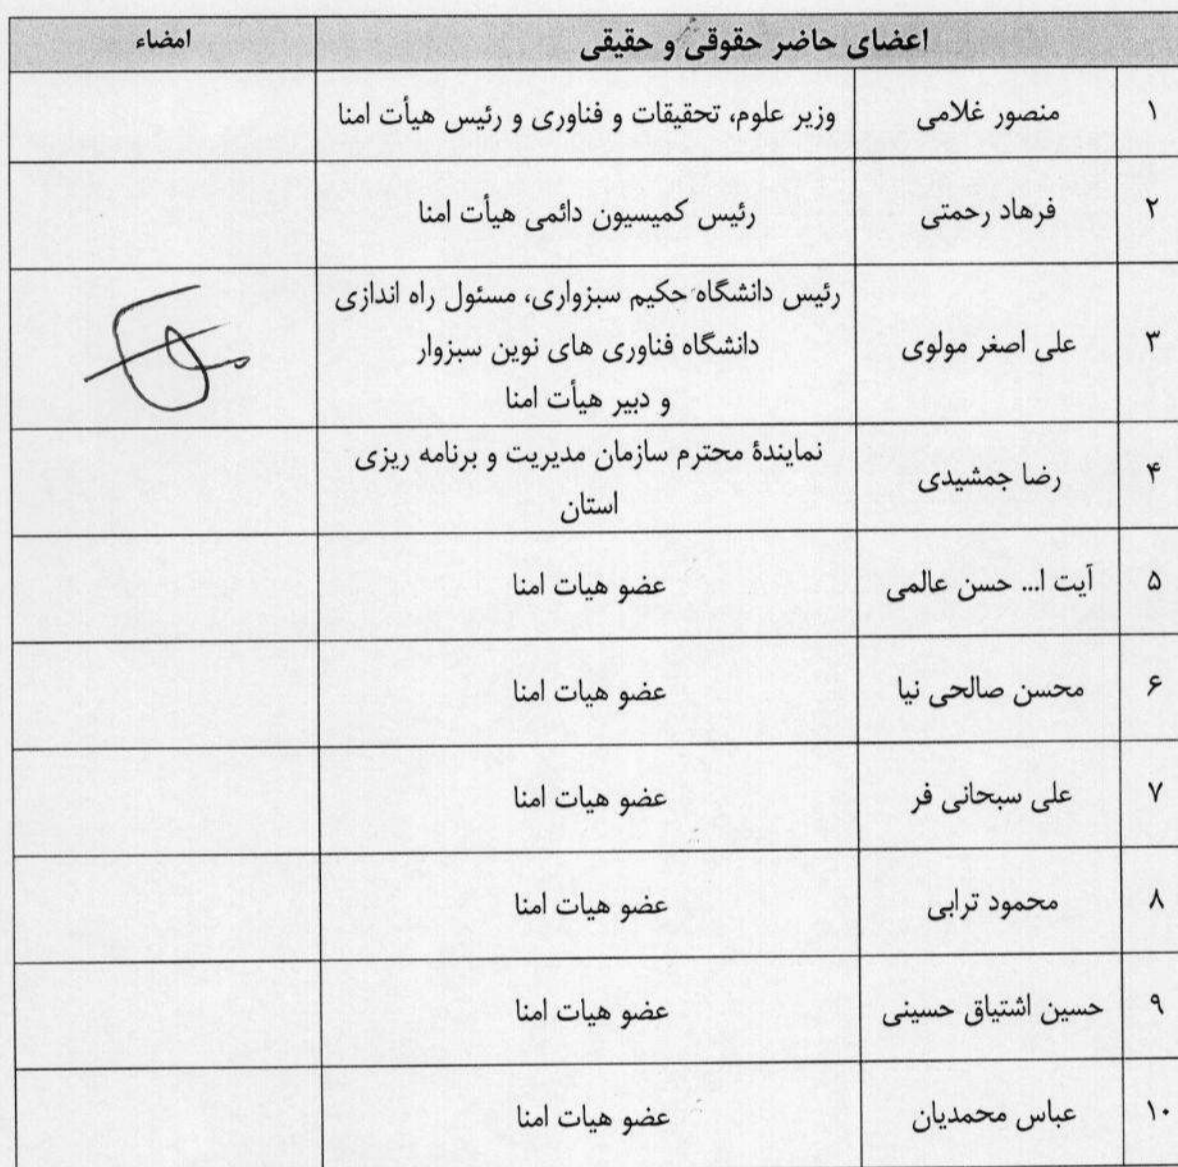 اعضای حاضر حقوقی و حقیقی امضاء
۱ منصور غلامی وزیر علوم، تحقیقات و فناوری و رئیس هیأت امنا
۲ فرهاد رحمتی رئیس کمیسیون دائمی هیأت امنا
۳ علی اصغر مولوی رئیس دانشگاه حکیم سبزواری، مسئول راه اندازی
دانشگاه فناوری های نوین سبزوار
و دبیر هیأت امنا
۴ رضا جمشیدی نمایندهٔ محترم سازمان مدیریت و برنامه ریزی
استان
۵ آیت ا... حسن عالمی عضو هیات امنا
۶ محسن صالحی نیا عضو هیات امنا
۷ علی سبحانی فر عضو هیات امنا
۸ محمود ترابی عضو هیات امنا
۹ حسین اشتیاق حسینی عضو هیات امنا
۱۰ عباس محمدیان عضو هیات امنا